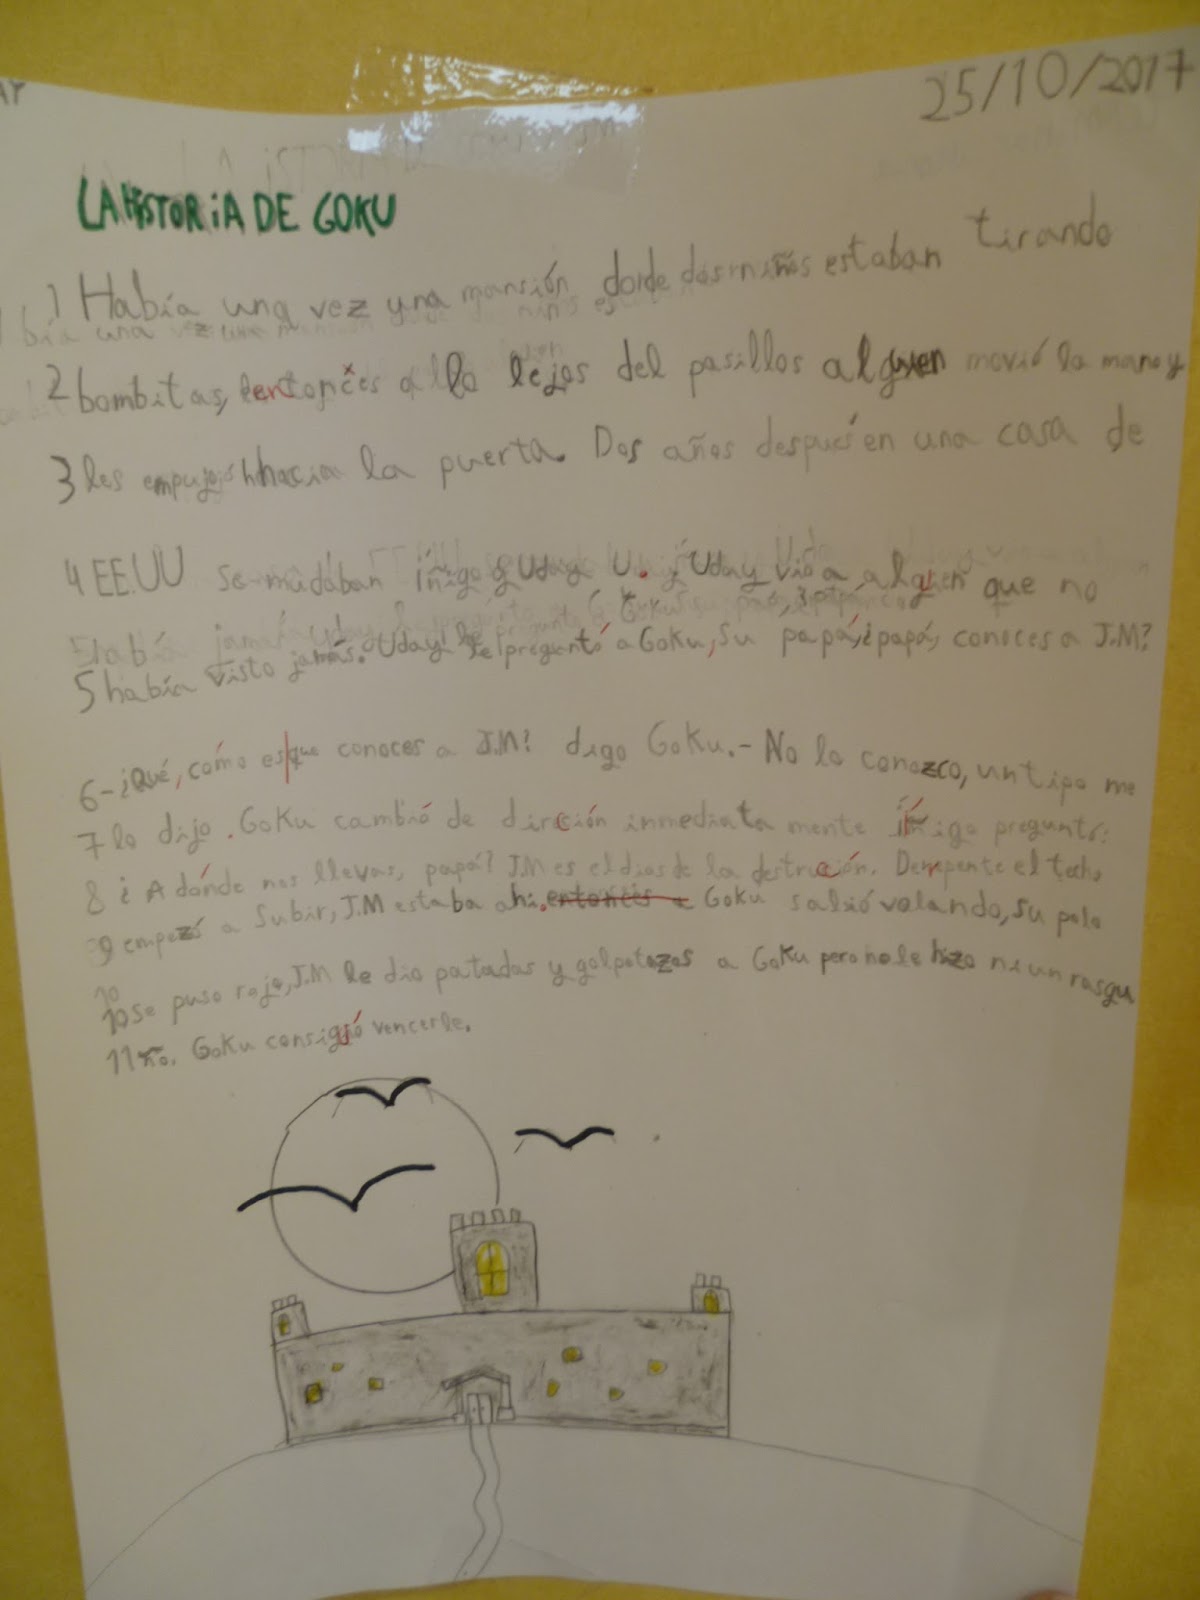 AY
25/10/2017
LA HISTORIA DE GOKU
1 Había una vez una mansión donde dos niños estaban tirando
2 bombitas, entonces a lo lejos del pasillos alguien movió la mano y
3 les empujó hacia la puerta. Dos años despues en una casa de
4 EE.UU se mudaban íñigo y Uday U. y Uday vio a alguien que no
5 había visto jamás. Uday le preguntó a Goku, su papá, ¿papá, conoces a J.M?
6 -¿Qué, cómo es que conoces a J.M? digo Goku.- No lo conozco, un tipo me
7 lo dijo. Goku cambió de dirección inmediata mente íñigo preguntó:
8 ¿A dónde nos llevas, papá? J.M es el dios de la destrucción. Derepente el techo
9 empezó a subir, J.M estaba ahi. entonces Goku salió volando, su pelo
10 se puso rojo, J.M le dio patadas y golpetazos a Goku pero no le hizo ni un rasgu
11 ño. Goku consiguió vencerle.